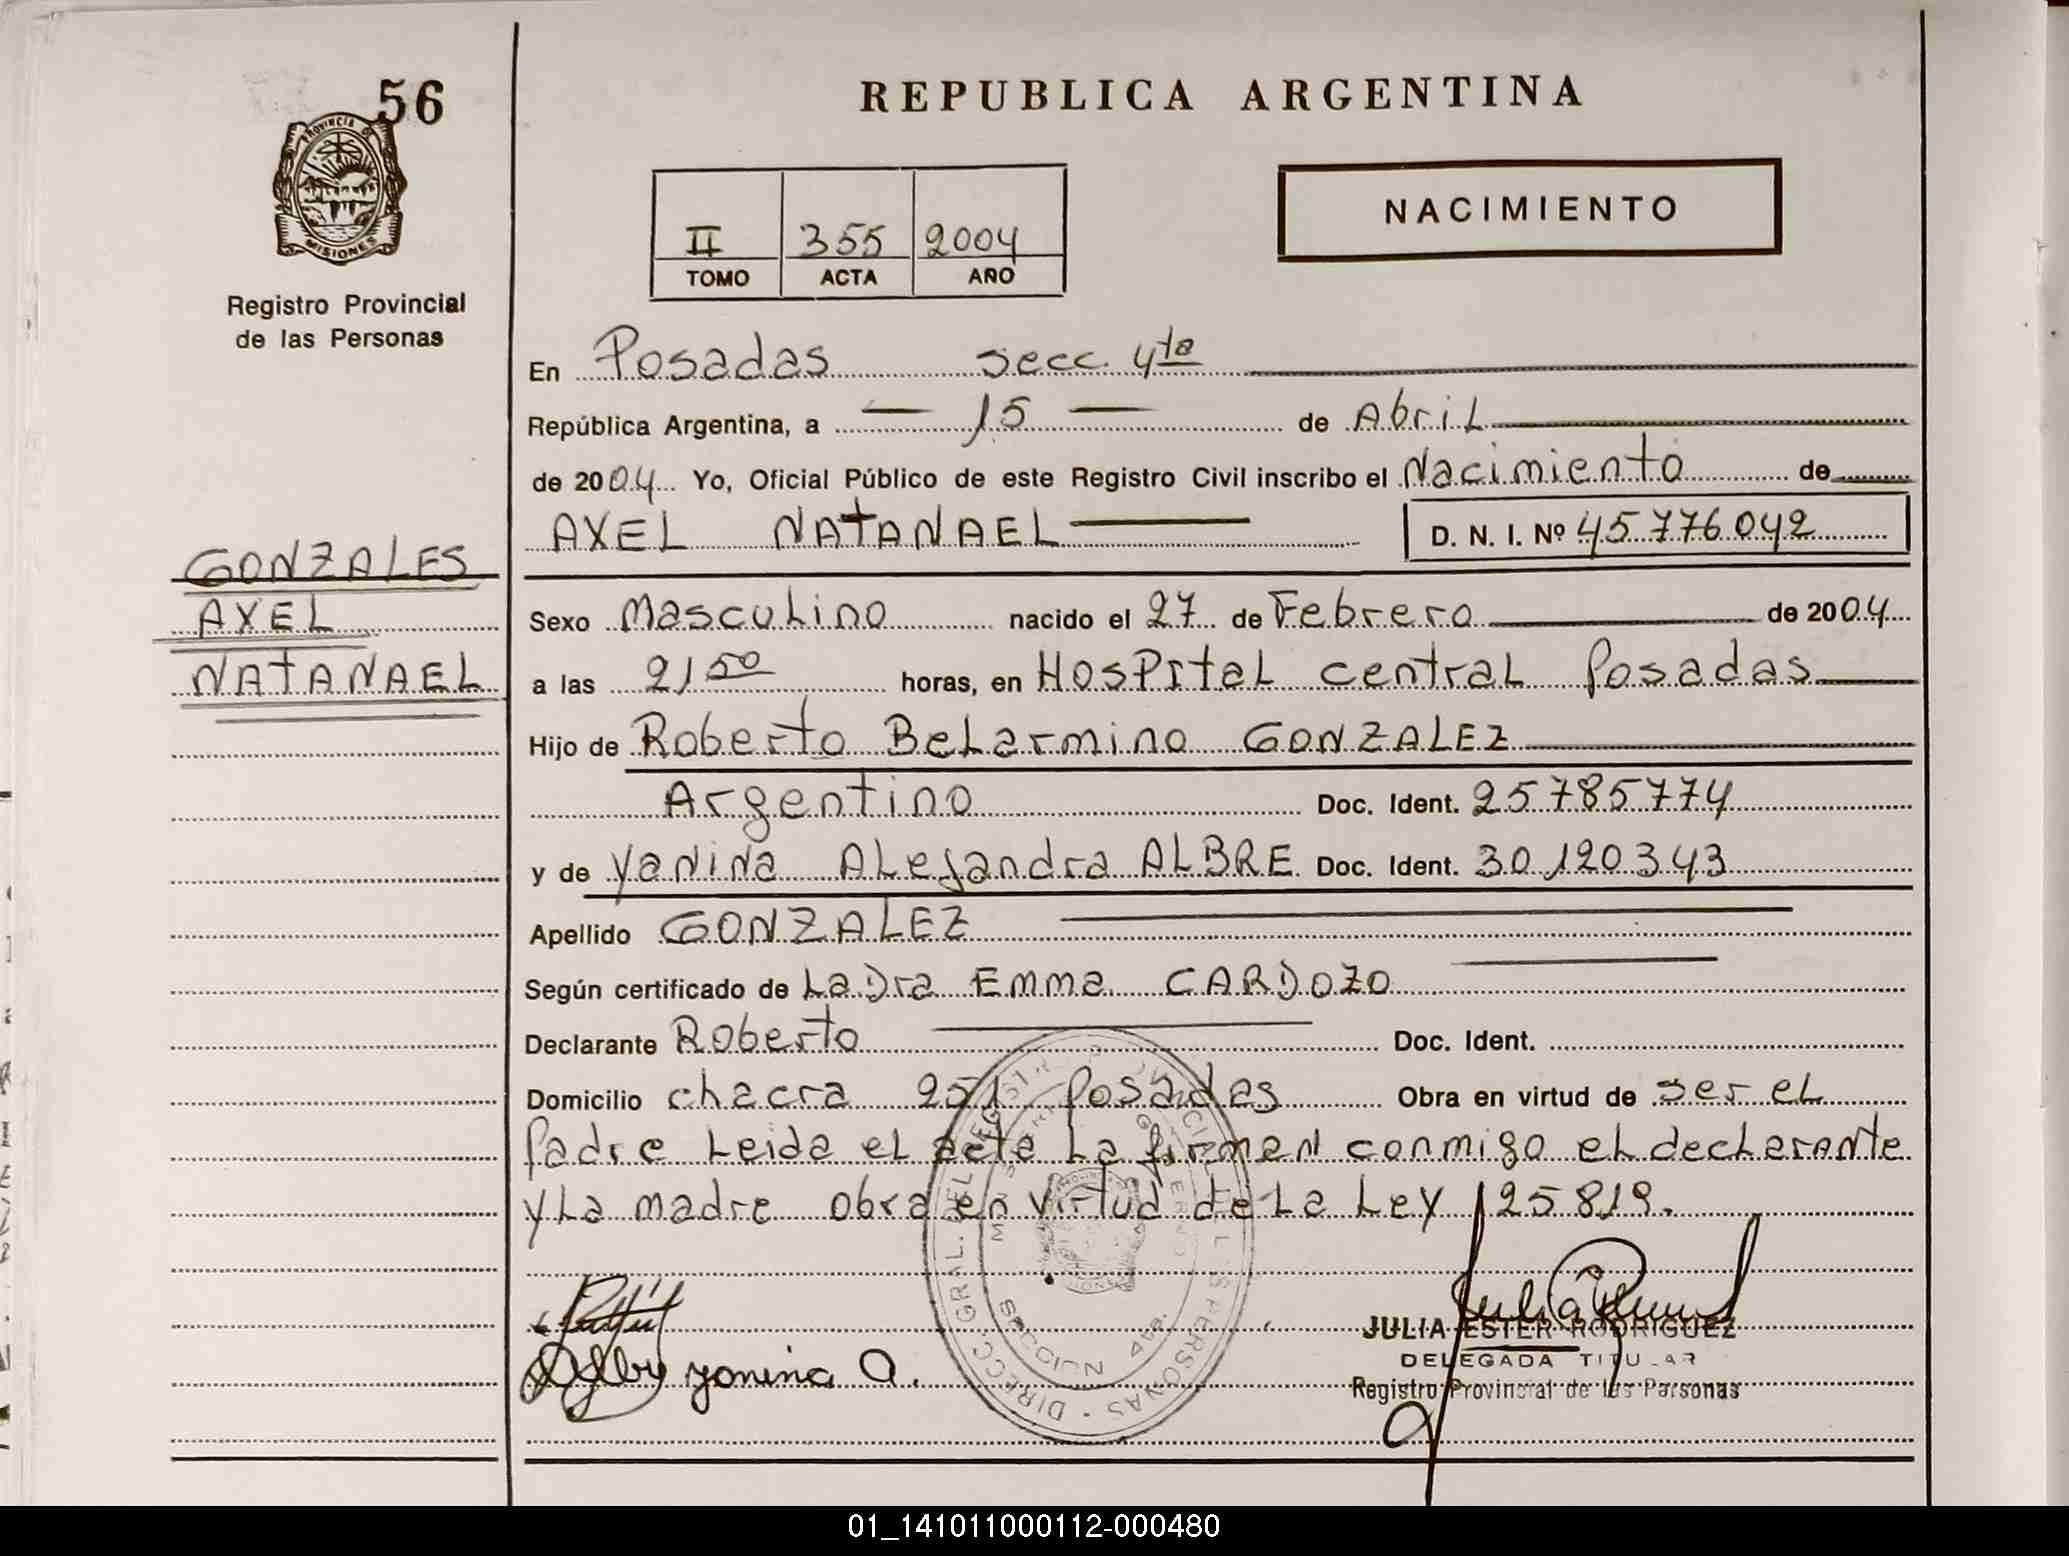 56
PROVINCIA DE
MISIONES
Registro Provincial
de las Personas
GONZALES
AXEL
NATANAEL
REPUBLICA ARGENTINA
II 355 2004
TOMO ACTA AÑO
NACIMIENTO
En Posadas secc. 4ta
República Argentina, a 15 de Abril
de 2004 Yo, Oficial Público de este Registro Civil inscribo el Nacimiento de
AXEL NATANAEL D. N. I. Nº 45.776.042
Sexo Masculino nacido el 27 de Febrero de 2004
a las 21 50 horas, en Hospital central Posadas
Hijo de Roberto Belarmino GONZALEZ
Argentino Doc. Ident. 25.785.774
y de Yanina Alejandra ALBRE Doc. Ident. 30.120.343
Apellido GONZALEZ
Según certificado de La Dra Emma CARDOZO
Declarante Roberto Doc. Ident.
Domicilio chacra 251 Posadas Obra en virtud de ser el
Padre Leida el acta La firman conmigo el declarante
y La madre obra en virtud de La Ley 125.819.
yanina A.
DIRECC. GRAL. DEL REGISTRO PROVINCIAL DE LAS PERSONAS
SECCION 4ta.
JULIA ESTER RODRIGUEZ
DELEGADA TITULAR
Registro Provincial de las Personas
01_141011000112-000480